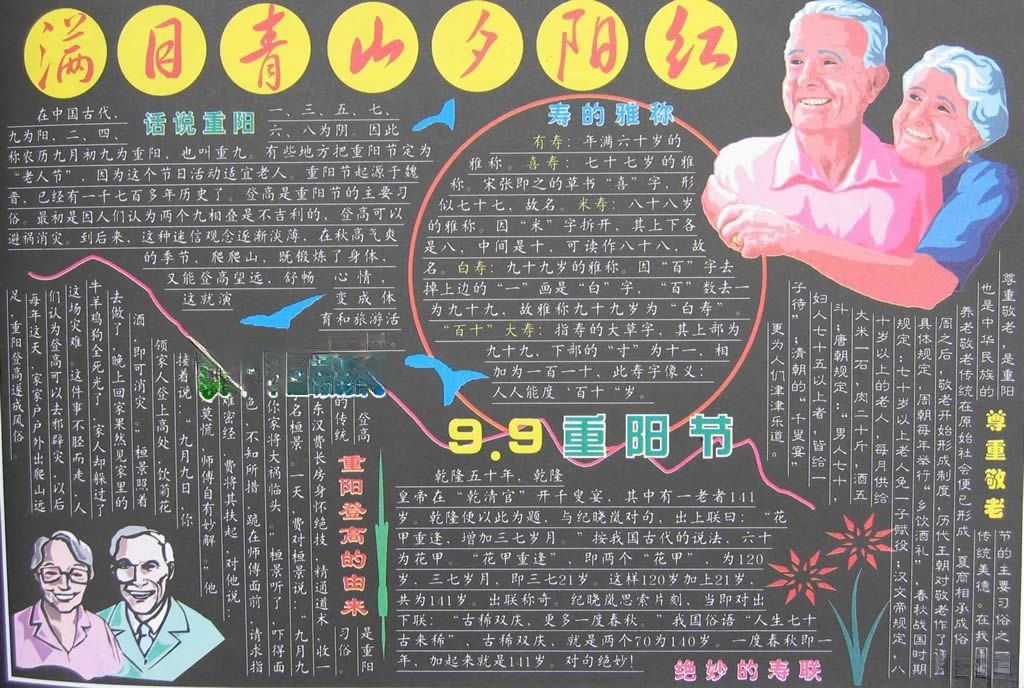 满目青山夕阳红
话说重阳
在中国古代、一、三、五、七、
九为阳，二、四、六、八为阴。因此
称农历九月初九为重阳，也叫重九。有些地方把重阳节定为
“老人节”，因为这个节日活动适宜老人。重阳节起源于魏
晋，已经有一千七百多年历史了。登高是重阳节的主要习
俗。最初是因人们认为两个九相叠是不吉利的，登高可以
避祸消灾。到后来，这种迷信观念逐渐淡薄，在秋高气爽
的季节，爬爬山，既锻炼了身体，
又能登高望远，舒畅心情，
这就演变成体
育和旅游活
寿的雅称
有寿：年满六十岁的
雅称。喜寿：七十七岁的雅
称。宋张即之的草书“喜”字，形
似七十七，故名。米寿：八十八岁
的雅称。因“米”字拆开，其上下各
是八，中间是十，可读作八十八，故
名。白寿：九十九岁的雅称。因“百”字去
掉上边的“一”画是“白”字，“百”数去一
为九十九，故雅称九十九岁为“白寿”
“百十”大寿：指寿的大草字，其上部为
九十九，下部的“寸”为十一，相
加为一百一十，此寿字像义：
人人能度‘百十“岁。
9.9重阳节
尊重敬老
尊重敬老，是重阳
节的主要习俗之一
也是中华民族的
传统美德。在我国
养老敬老传统在原始社会便已形成，夏商相承成俗
周之后，敬老开始形成制度，历代王朝对敬老作了许
具体规定：周朝每年举行“乡饮酒礼”，春秋战国时期
规定：七十岁以上老人免一子赋役；汉文帝规定，八
十岁以上的老人，每月供给
大米一石，肉二十斤，酒五
斗；唐朝规定：“男人七十，
妇人七十五以上者，皆给一
子待”；清朝的“千叟宴”
更为人们津津乐道。
重阳登高的由来
登高
是重阳
的传统
习俗
东汉费长房身怀绝技，精通道术，收一
名桓景。一天，费对桓景说：“九月九
你家将大祸临头。”桓景听了，吓得面
色，不知所措，跪在师傅面前，请求指
难密经，费将其扶起，对他说：
莫慌，师傅自有妙解。”他
接着说：“九月九日，你
领家人登上高处，饮菊花
酒，即可消灾。”桓景照着
去做了，晚上回家果然见家里的
牛羊鸡狗全死光了，家人却躲过了
这场灾难。这件事不胫而走，人
们认为登高可以去邪辟灾，以后
每年这天，家家户户外出爬山远
足，重阳登高遂成风俗。
乾隆五十年，乾隆
皇帝在“乾清宫”开千叟宴，其中有一老者141
岁。乾隆便以此为题，与纪晓岚对句，出上联曰：“花
甲重逢，增加三七岁月。”按我国古代的说法，六十
为花甲。“花甲重逢”，即两个“花甲”，为120
岁，三七岁月，即三七21岁。这样120岁加上21岁，
共为141岁。出联称奇。纪晓岚思索片刻，当即对出
下联：“古稀双庆，更多一度春秋。”我国俗语“人生七十
古来稀”，古稀双庆，就是两个70为140岁。一度春秋即一
年，加起来就是141岁。对句绝妙！
绝妙的寿联